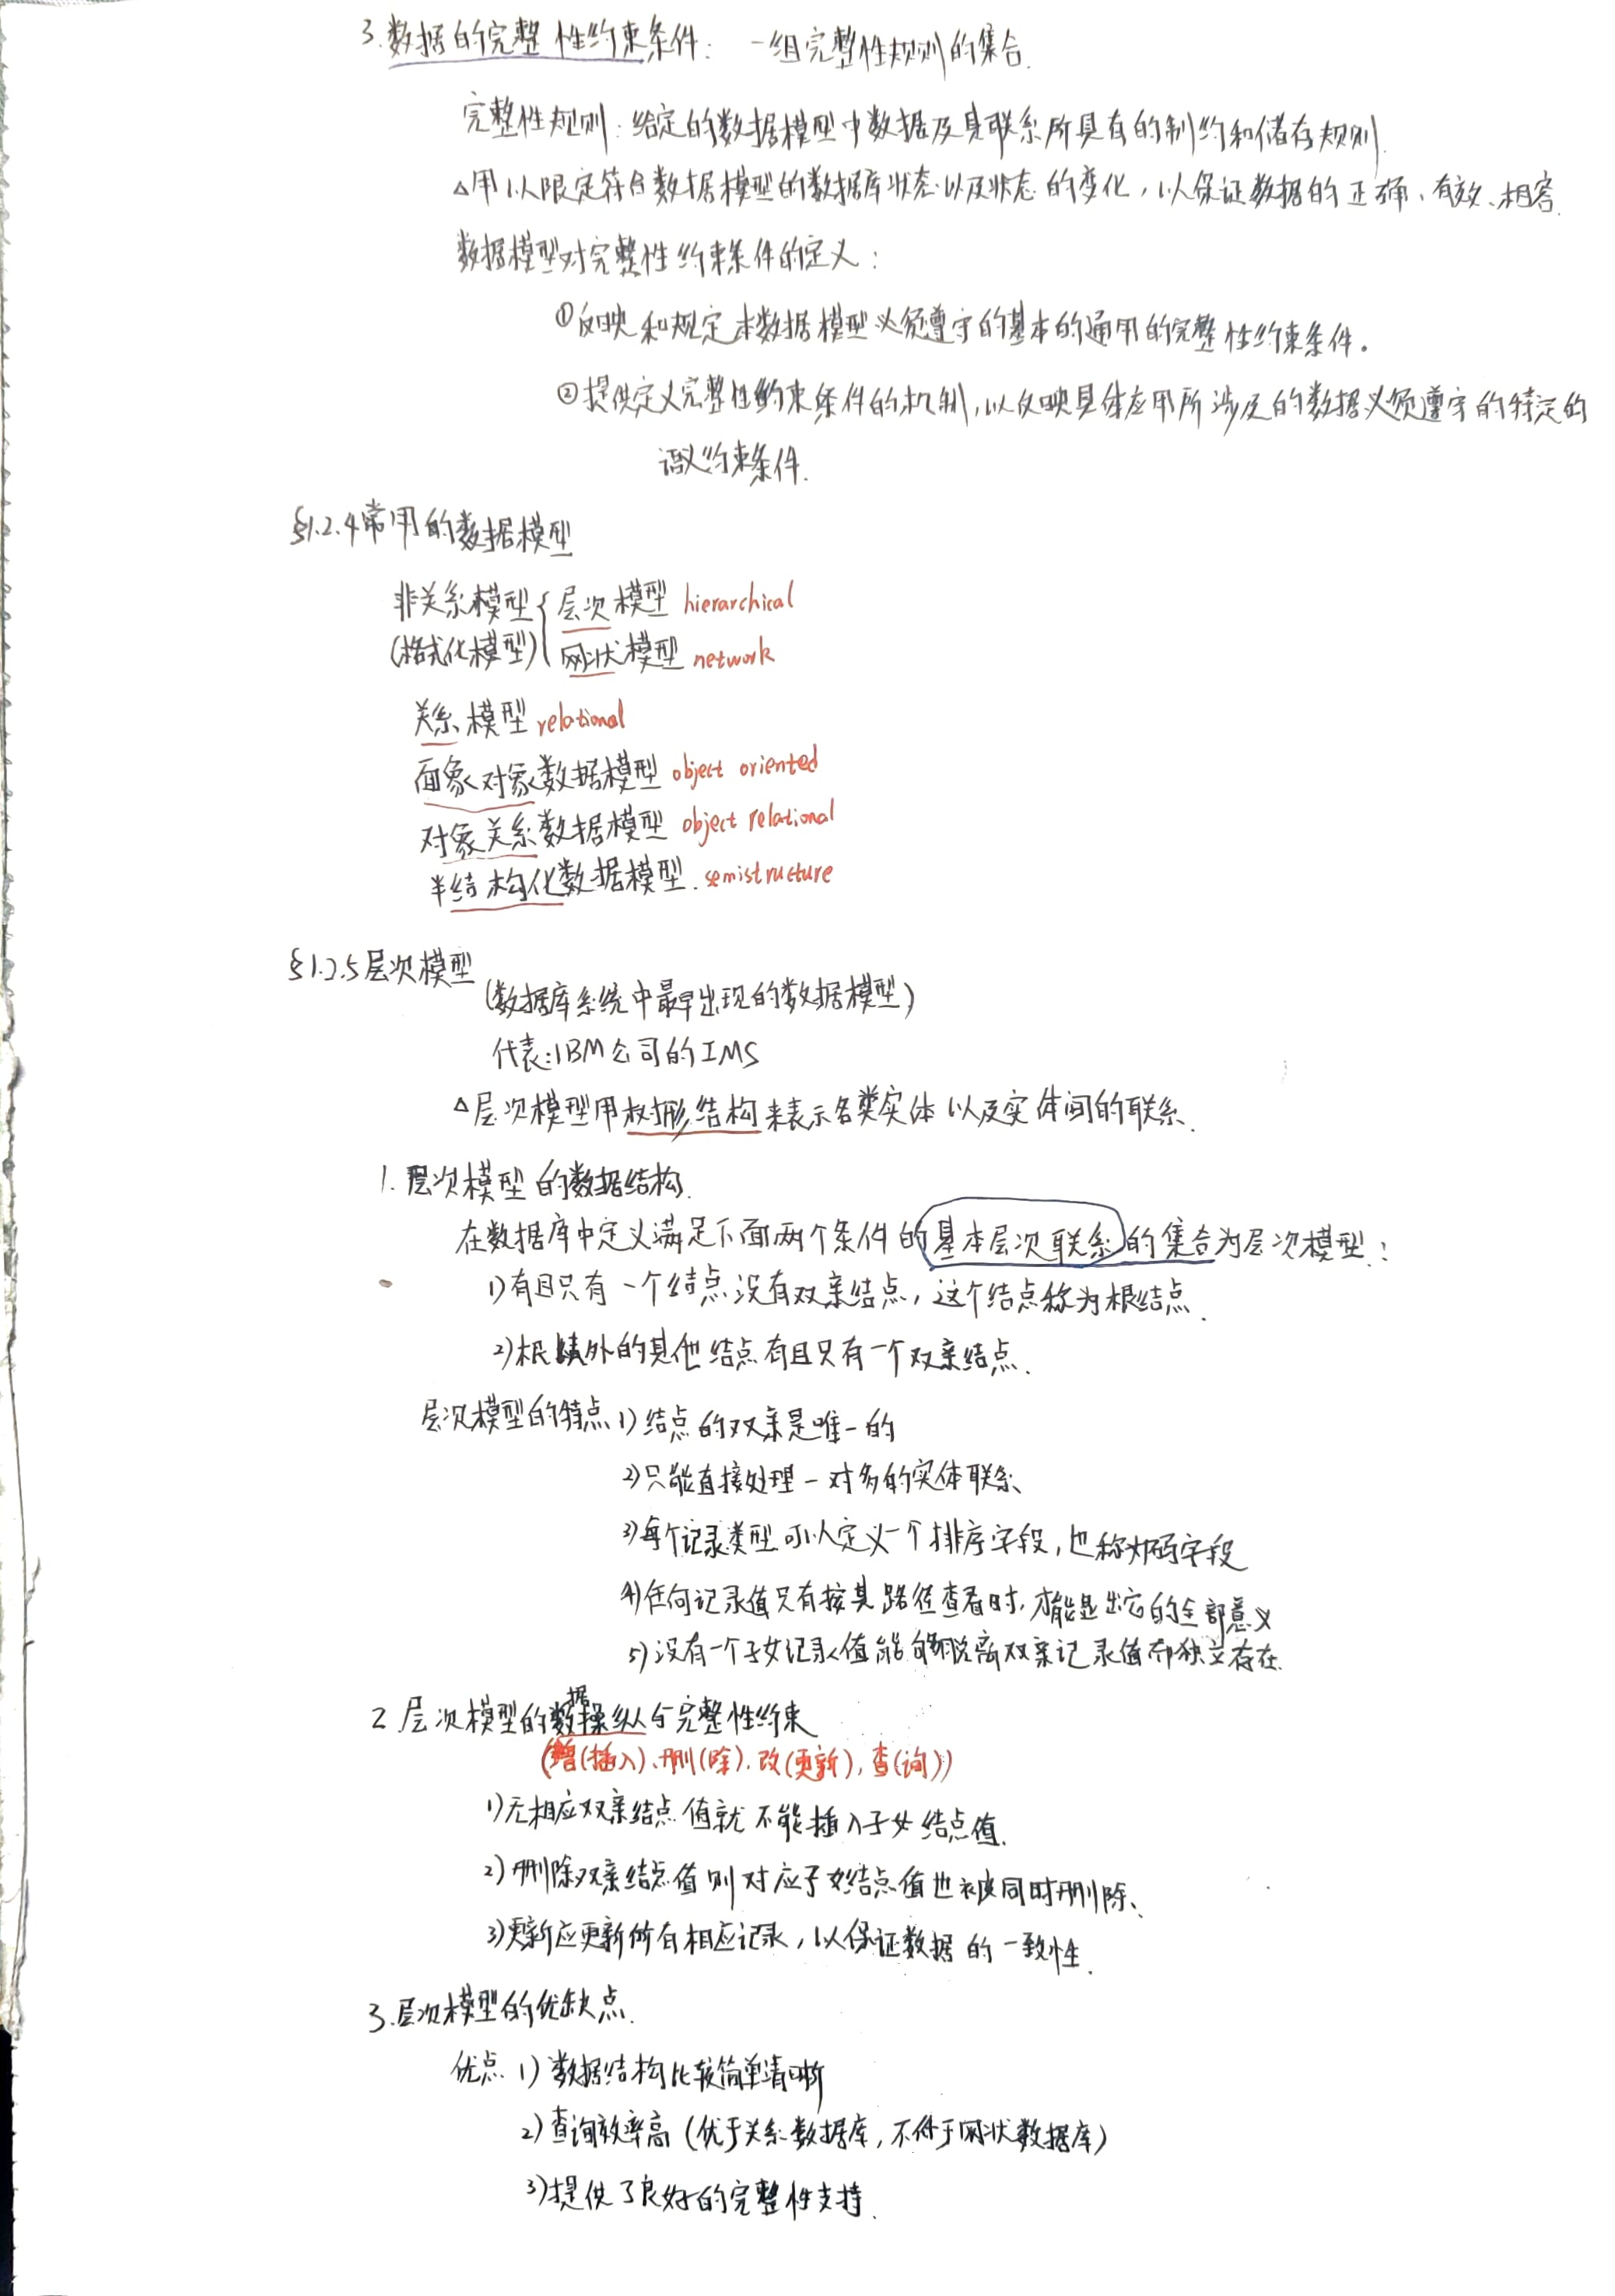 3.数据的完整性约束条件：一组完整性规则的集合.
完整性规则：给定的数据模型中数据及其联系所具有的制约和储存规则.
△用以限定符合数据模型的数据库状态以及状态的变化，以保证数据的正确、有效、相容.
数据模型对完整性约束条件的定义：
①反映和规定本数据模型必须遵守的基本的通用的完整性约束条件。
②提供定义完整性约束条件的机制，以反映具体应用所涉及的数据必须遵守的特定的
语义约束条件.
§1.2.4常用的数据模型
非关系模型{层次模型 hierarchical
(格式化模型) 网状模型 network
关系模型 relational
面象对象数据模型 object oriented
对象关系数据模型 object relational
半结构化数据模型. semistructure
§1.2.5层次模型
(数据库系统中最早出现的数据模型)
代表：IBM公司的IMS
△层次模型用树形结构来表示各类实体以及实体间的联系.
1.层次模型的数据结构.
在数据库中定义满足下面两个条件的基本层次联系的集合为层次模型：
1)有且只有一个结点没有双亲结点，这个结点称为根结点.
2)根以外的其他结点有且只有一个双亲结点.
层次模型的特点1)结点的双亲是唯一的
2)只能直接处理一对多的实体联系
3)每个记录类型可以定义一个排序字段，也称为码字段
4)任何记录值只有按其路径查看时，才能显出它的全部意义
5)没有一个子女记录值能够脱离双亲记录值而独立存在.
2层次模型的数据操纵与完整性约束
(增(插入).删(除).改(更新),查(询))
1)无相应双亲结点值就不能插入子女结点值.
2)删除双亲结点值则对应子女结点值也被同时删除、
3)更新应更新所有相应记录，以保证数据的一致性.
3.层次模型的优缺点.
优点 1)数据结构比较简单清晰
2)查询效率高(优于关系数据库，不低于网状数据库)
3)提供了良好的完整性支持.